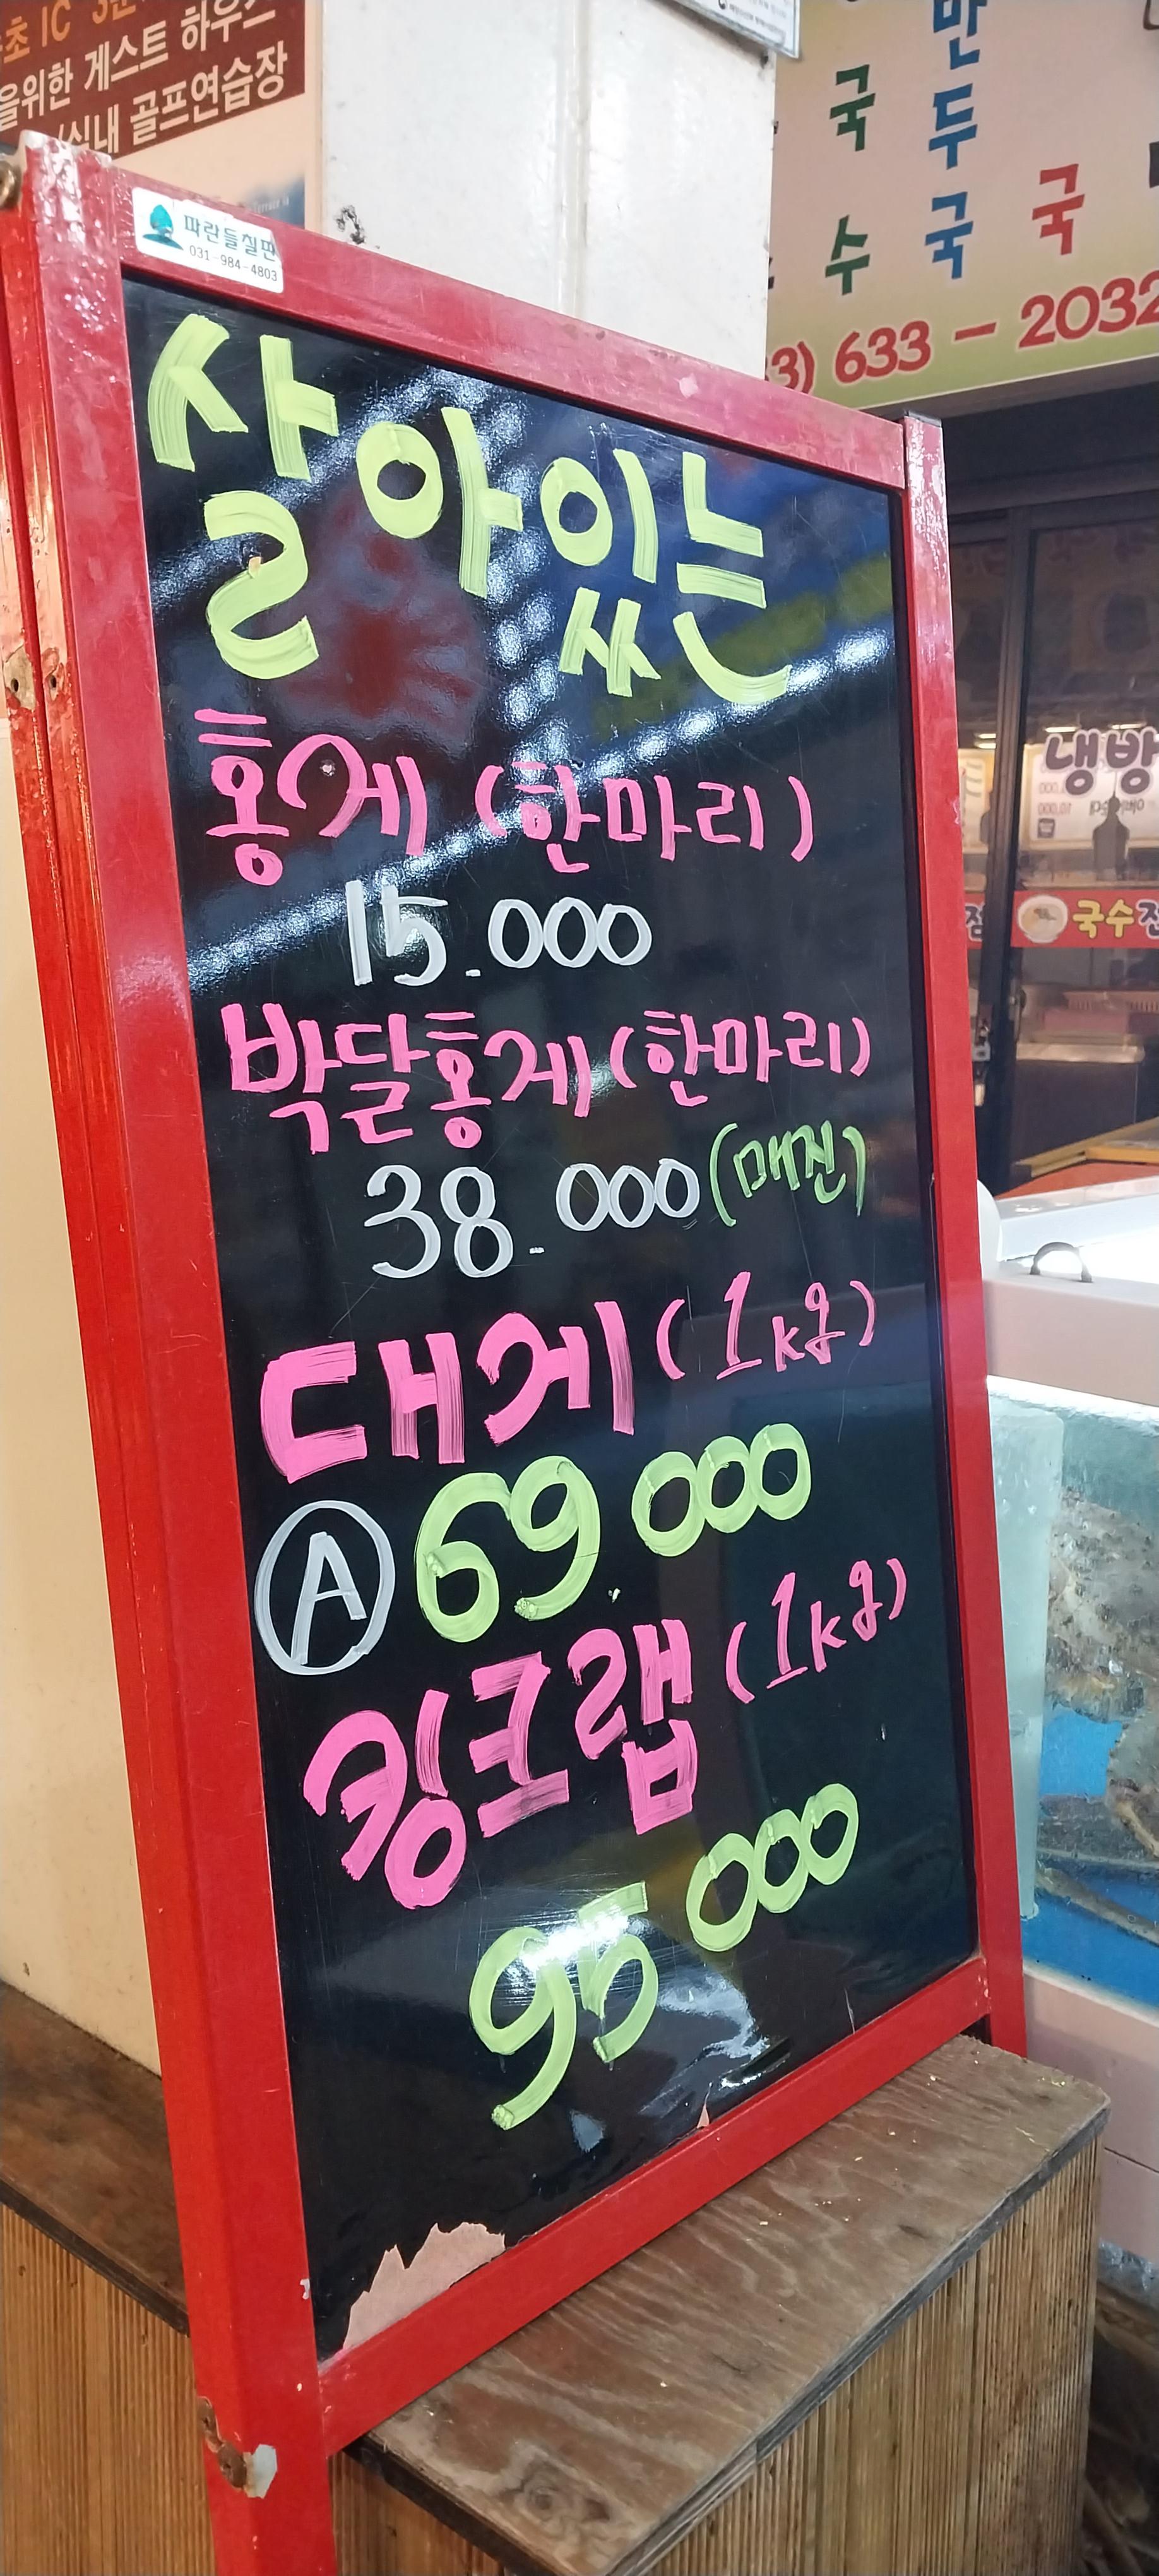 초 IC
을위한 게스트 하우스
실내 골프연습장
만
국 두
수 국 국
3) 633 - 2032
파란들칠판
031-984-4803
살아있는
홍게 (한마리)
15.000
박달홍게 (한마리)
38.000 (매진)
대게 (1kg)
Ⓐ 69 000
킹크랩 (1kg)
95 000
냉방
국수전